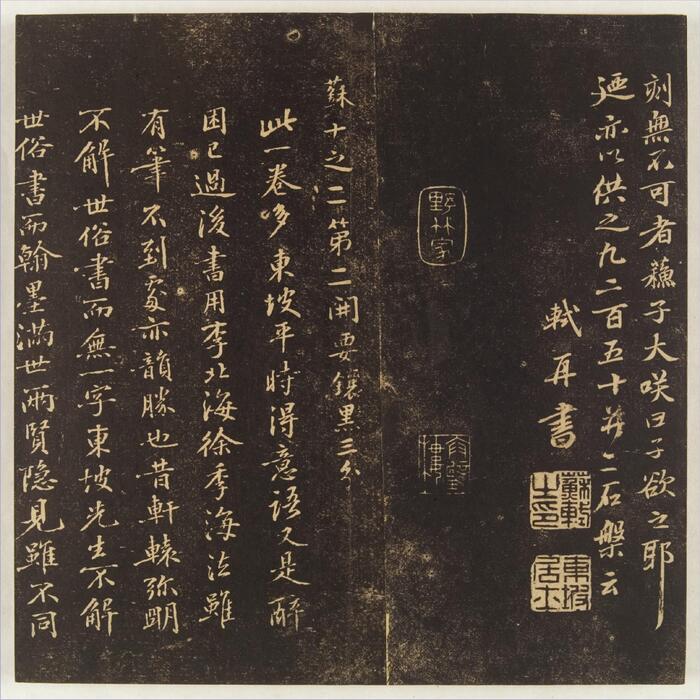 刻無不可者蘓子大咲曰子欲之耶
廼亦以供之凡二百五十并二石槃云
軾再書
蘇軾之印
東坡居士
野林家
蘇十之二第二開要鑲黑三分
此一卷多東坡平時得意語又是醉
困已過後書用李北海徐季海法雖
有筆不到處亦韻勝也昔軒轅弥明
不解世俗書而無一字東坡先生不解
世俗書而翰墨滿世兩賢隐見雖不同